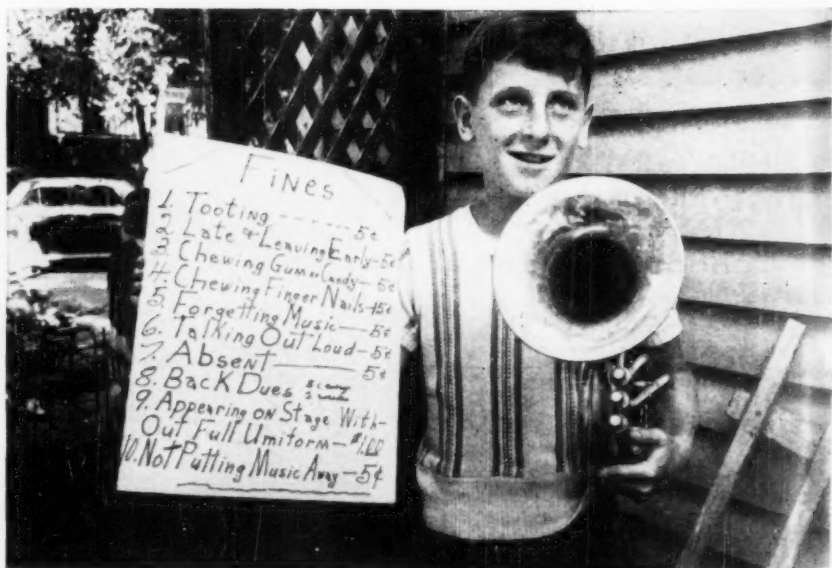 FINES
1. Tooting ------ 5¢
2. Late or Leaving Early - 5¢
3. Chewing Gum or Candy - 5¢
4. Chewing Finger Nails - 15¢
5. Forgetting Music — 5¢
6. Talking Out Loud - 5¢
7. Absent — 5¢
8. Back Dues
9. Appearing on Stage With-
Out Full Umiform - $1.00
10. Not Putting Music Away - 5¢